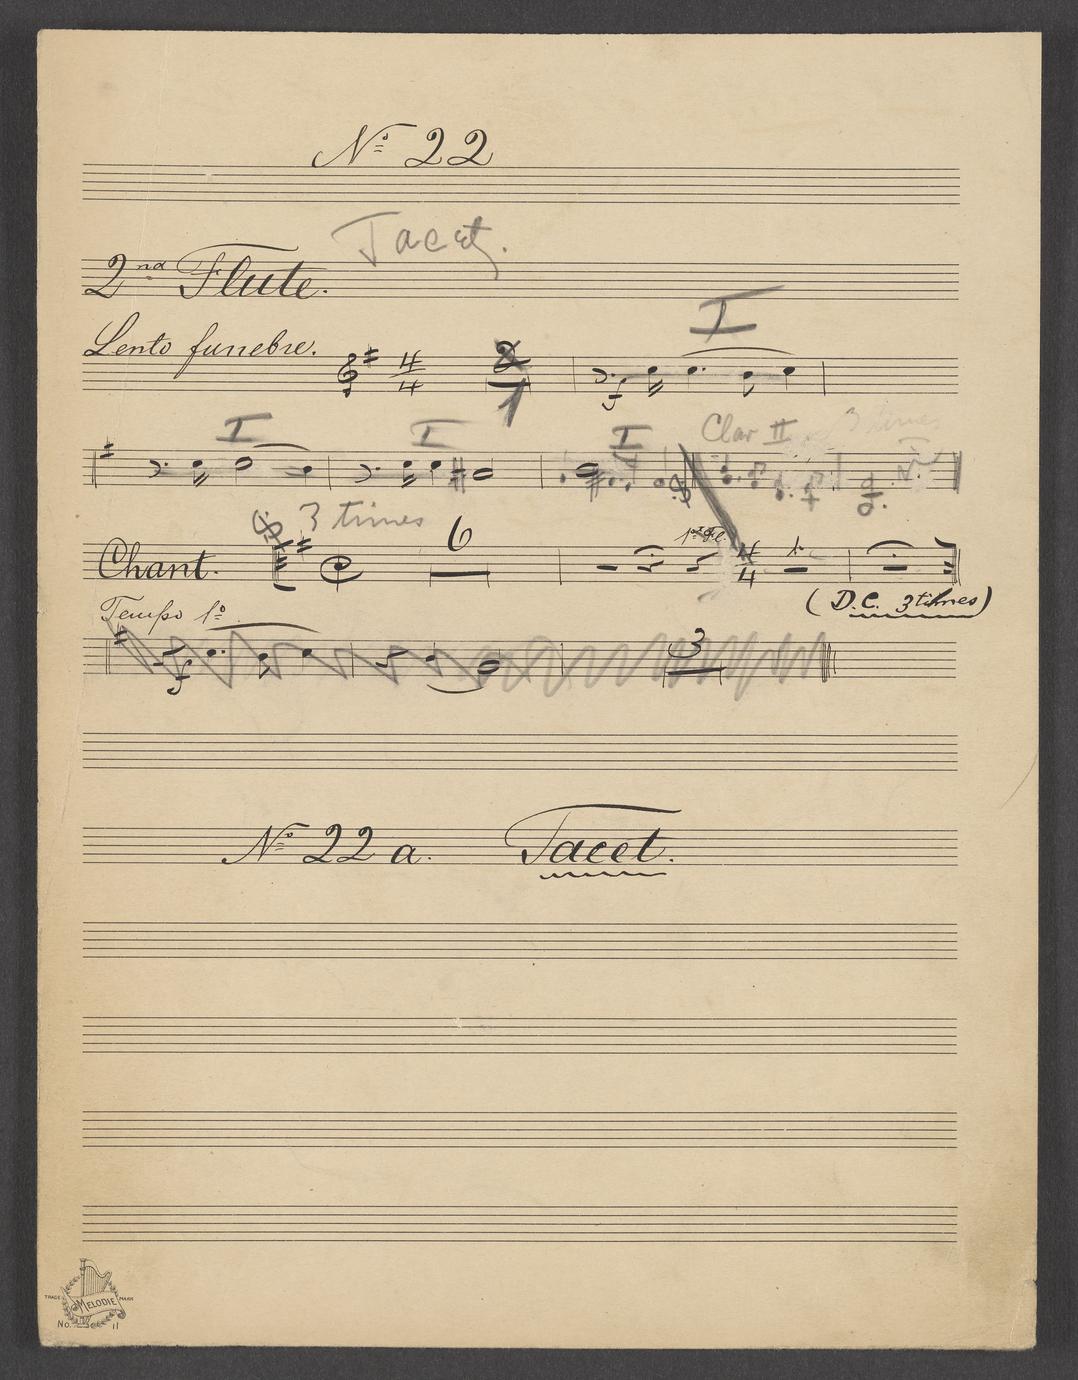 Nº 22
Tacet.
2nd Flute.
Lento funebre.
4
4
2
1
I
f
I I I Clar II 3 times
3 times
6
Chant.
1º Fl.
4
4
(D.C. 3 times)
Tempo 1º
f
3
Nº 22 a. Tacet.
TRADE MELODIE MARK
No. 11